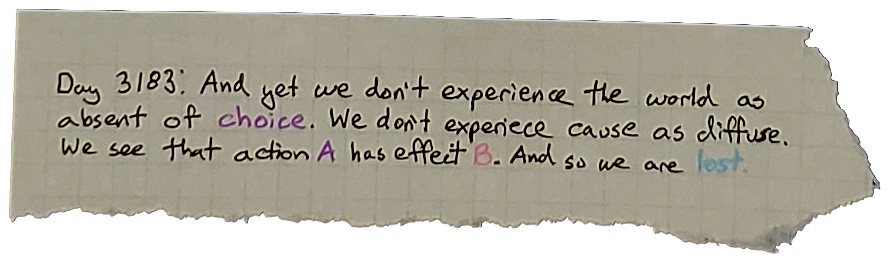 Day 3183: And yet we don't experience the world as
absent of choice. We don't experiece cause as diffuse.
We see that action A has effect B. And so we are lost.